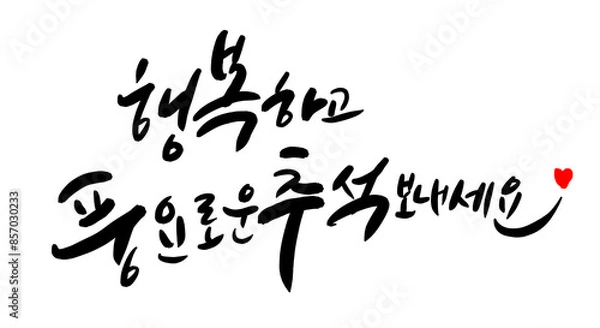 행복하고
풍요로운 추석 보내세요
Adobe Stock | #857030233